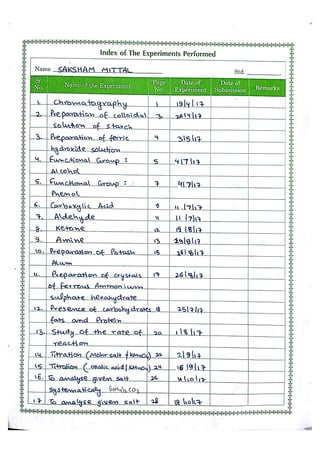 Index of The Experiments Performed
Name SAKSHAM MITTAL Std.
Sr. No. Name of the Experiment Page No Date of Experiment Date of Submission Remarks
1. Chromatography 1 19/4/17
2. Preparation of colloidal 3. 20/4/17
solution of starch
3. Preparation of ferric 4 3/5/17
hydroxide solution
4. Functional Group : 5 4/7/17
Alcohol
5. Functional Group : 7 4/7/17
Phenol
6. Carboxylic Acid 9 11/7/17
7. Aldehyde 11 11/7/17
8. Ketone 12 19/8/17
9. Amine 13
10. Preparation of Potash 15
Alum
11. Preparation of crystals 17
of Ferrous Ammonium
sulphate hexahydrate
12. Presence of carbohydrates 18 25/7/17
fats and Protein
13. Study of the rate of 20 1/8/17
reaction
14 Titration (Mohr salt / KMnO4) 22 2/9/17
15 Titration (Oxalic acid / KMnO4) 24 16/9/17
16. To analyse given salt 26 4/10/17
systematically (NH4)2CO3
17 To analyse given salt 28